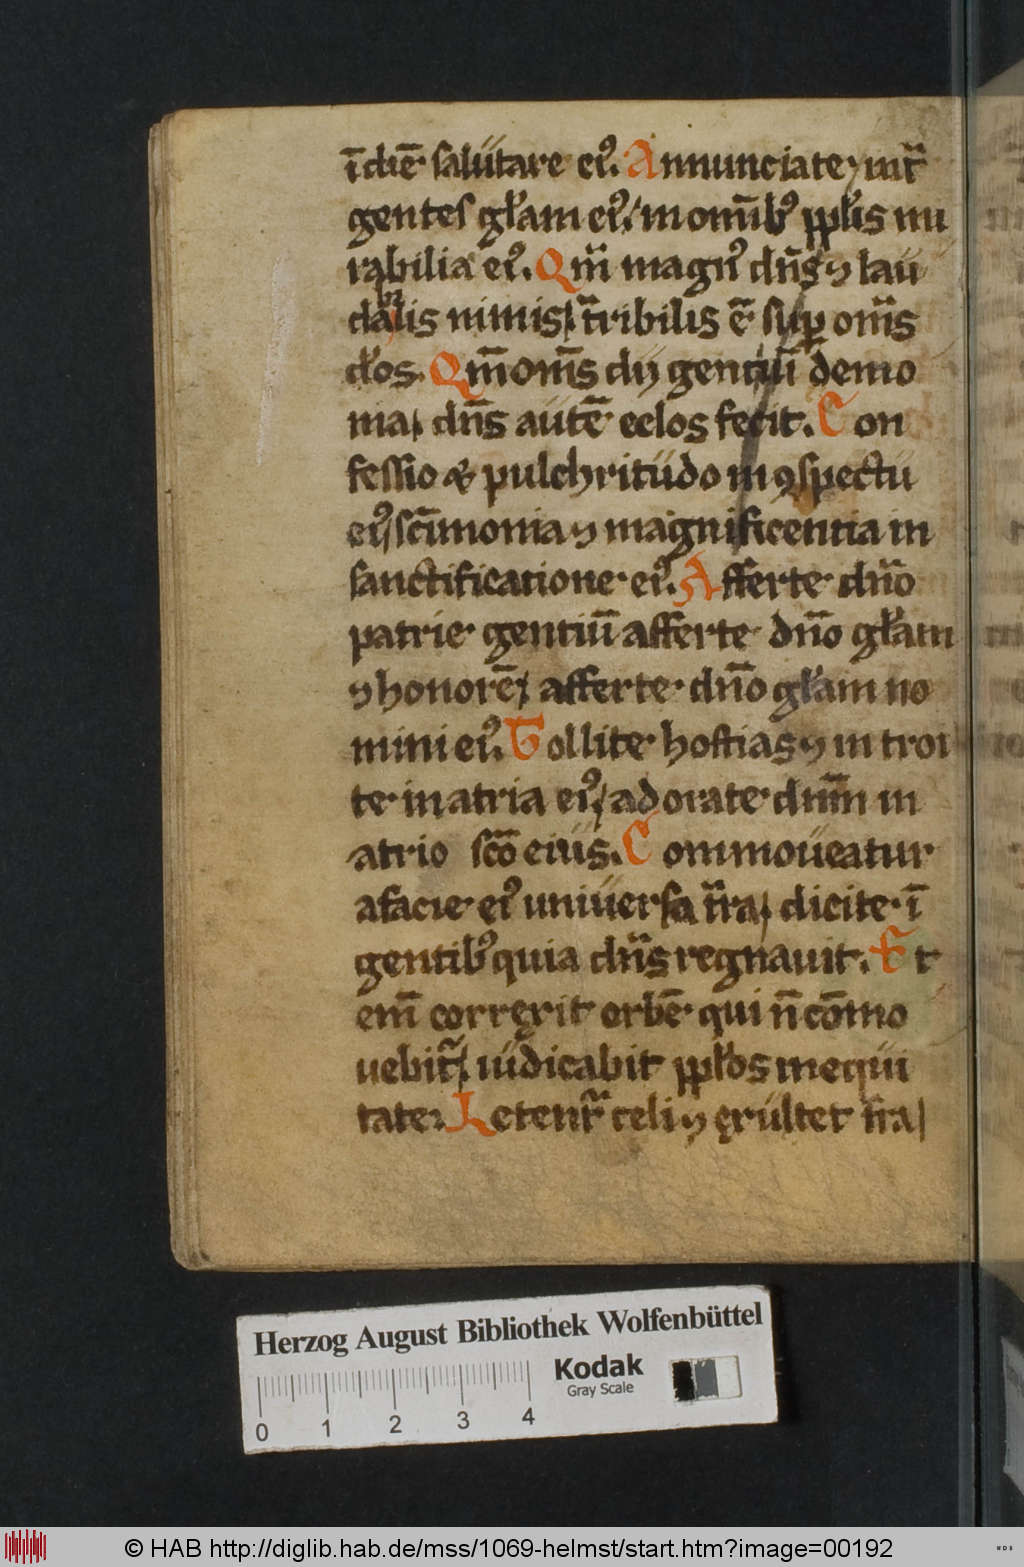 ī diē salutare eiꝰ. Annunciate int̄
gentes gl̄am eiꝰ / in omīb̓ ppl̓is mi
rabilia eiꝰ. Qm̄ magnꝰ dn̄s ⁊ lau
dabilis nimis / t̄ribilis ē sup̱ om̄s
d̓os. Qm̄ om̄s dij gentiū demo
nia / dn̄s autē celos fecit. Con
fessio & pulchritudo in ꝯspectu
eiꝰ / sc̄imonia ⁊ magnificentia in
sanctificatione eiꝰ. Afferte dn̄o
patrie gentiū afferte dn̄o gl̄am
⁊ honorē / afferte dn̄o gl̄am no
mini eiꝰ. Tollite hostias ⁊ introi
te in atria eiꝰ / adorate dnm̄ in
atrio sc̄o eius. Commoueatur
a facie eiꝰ uniuersa t̄ra / dicite ī
gentib̓ quia dn̄s regnauit. Et
em̄ correxit orbē qui n̄ cōmo
uebit̄ / iudicabit ppl̓os in equi
tate. Letent̄ celi ⁊ exultet t̄ra /
Herzog August Bibliothek Wolfenbüttel
Kodak
Gray Scale
0 1 2 3 4
© HAB http://diglib.hab.de/mss/1069-helmst/start.htm?image=00192